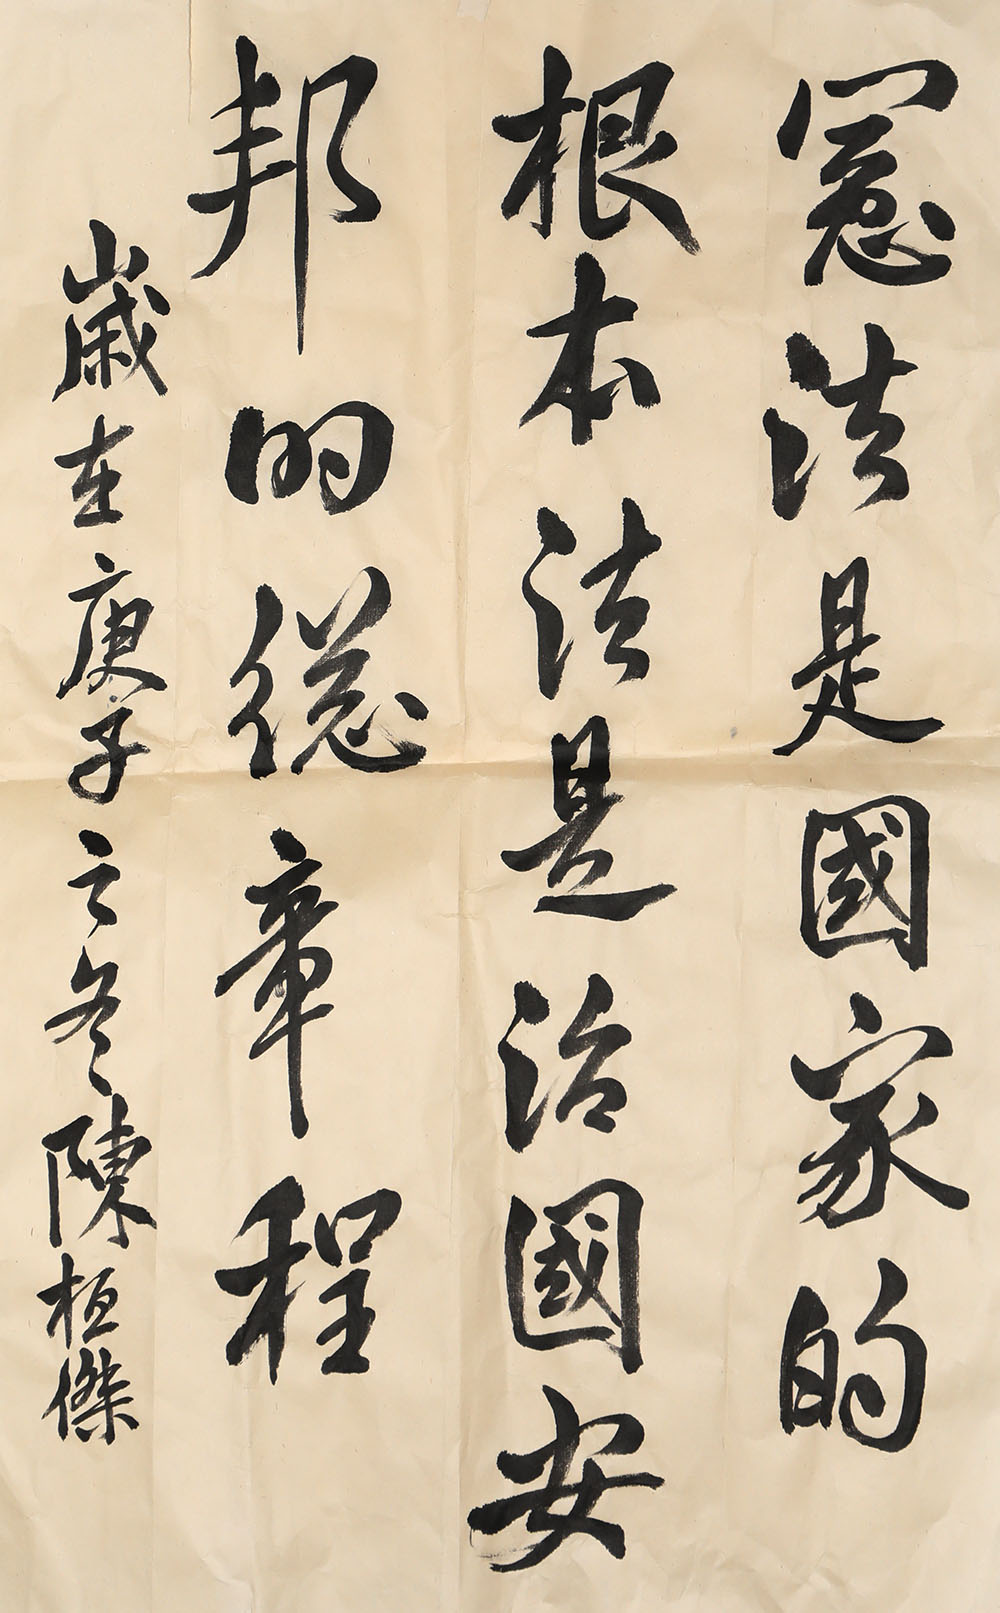 憲法是國家的
根本法是治國安
邦的總章程
歲在庚子之冬陳桓傑